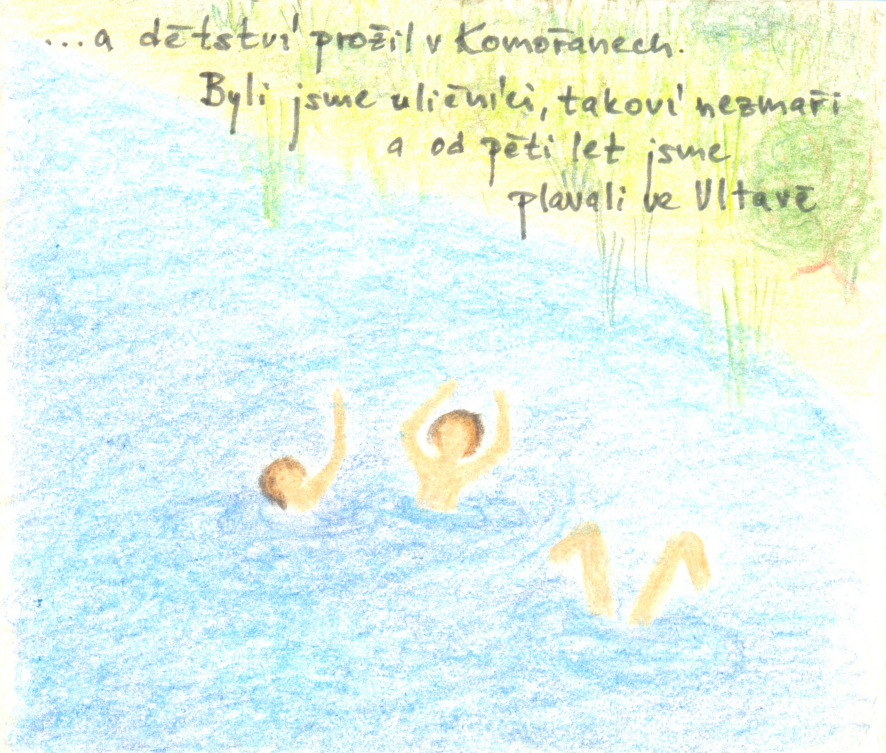 ...a dětství prožil v Komořanech.
Byli jsme uličníci, takoví nezmaři
a od pěti let jsme
plavali ve Vltavě